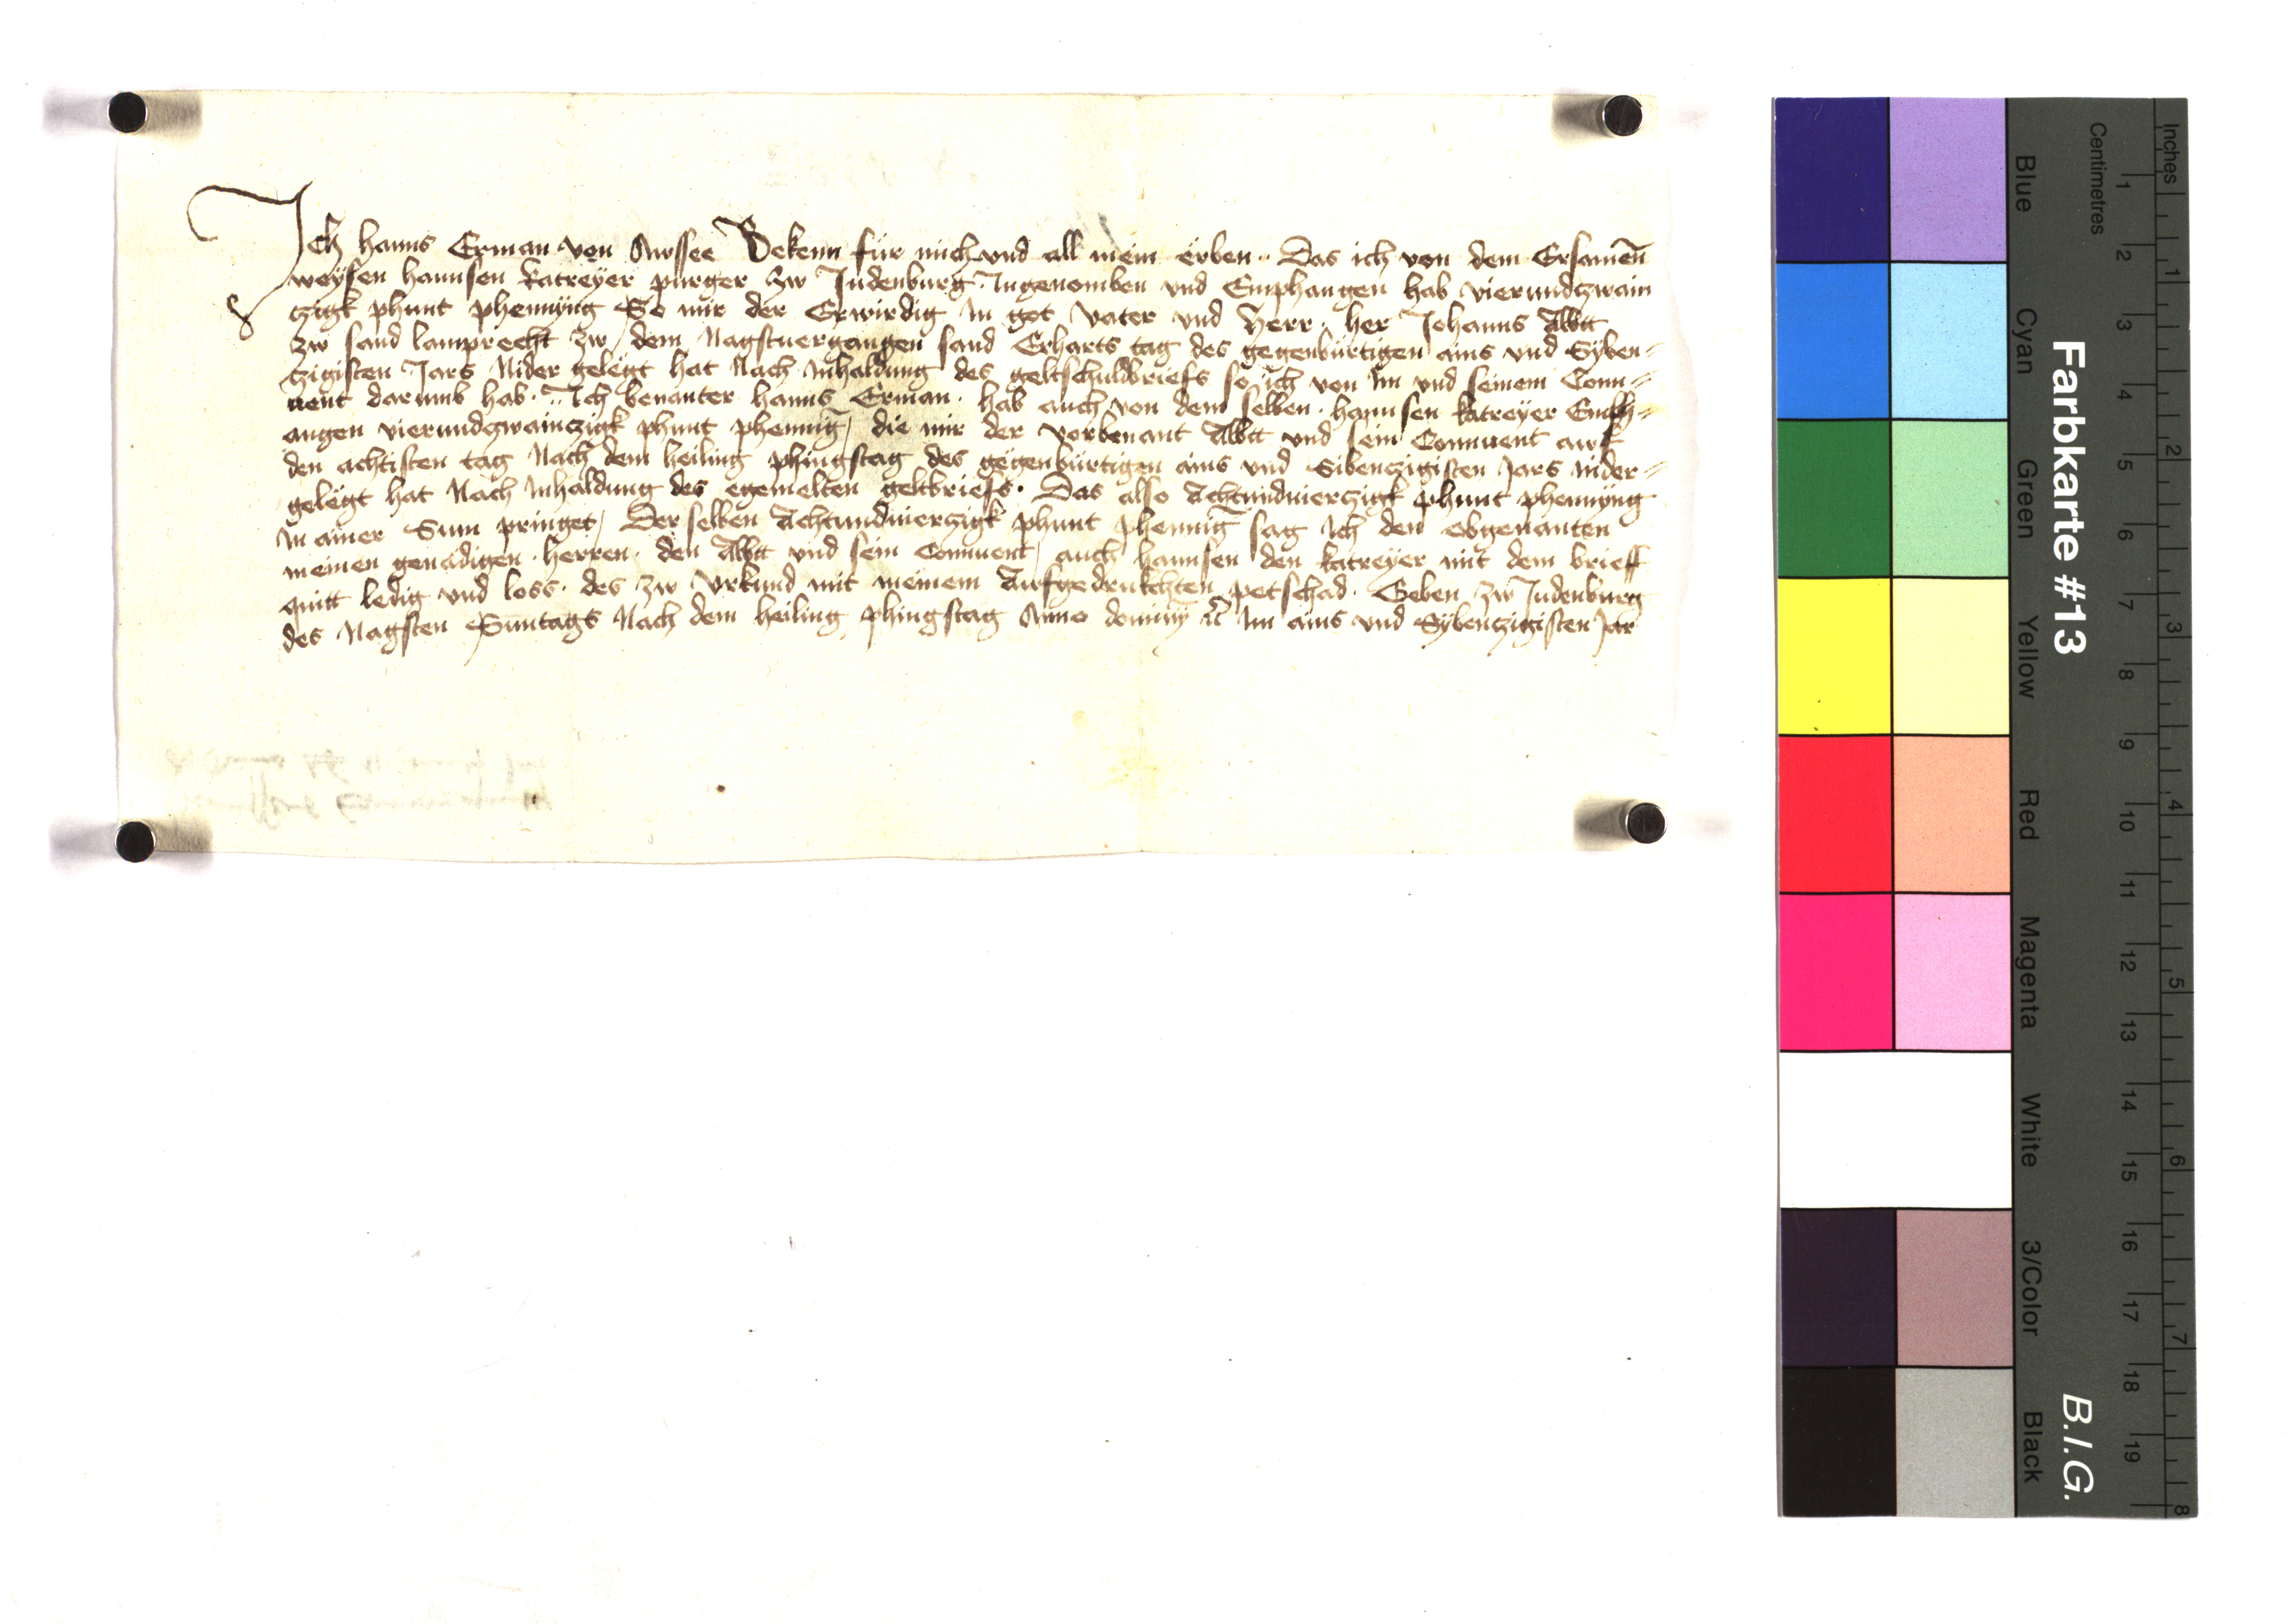 Ich hanns Erman von Awssee Bekenn für mich vnd all mein erben. Das ich von dem Ersamen̄
weysen hannsen katreyer purger zw Judenburg Ingenomben vnd Emphangen hab vierundzwain
czigk phunt phennyng So mir der Erwirdig In got vater vnd herr her Johanns Abbt
zw sand lamprecht zw dem Nagstuergangen sand Erharts tag des gegenbürtigen ains vnd Syben=
czigisten Jars Nider gelegt hat Nach Inhaldung des geltschuldbriefs so ich von Im vnd seinem Conu=
uent darumb hab. Ich benanter hanns Erman. hab auch von dem selben. hannsen katreyer Emph=
angen vierundzwainczigk phunt phennig / die mir der vorbenant Abbt vnd sein Conuuent awf
den achtisten tag Nach dem heiling phingstag des gegenbürtigen ains vnd Sibenczigisten Jars nider=
gelegt hat Nach Inhaldung des egemelten geltbriefs. Das also Achtundvierczigk phunt phennyng
In ainer Sum pringet / Der selben Achtundvierczigk phunt phennig sag Ich den obgenanten
meinen genädigen herren. den Abbt vnd sein Conuuent / auch hannsen den katreyer mit dem brieff
quitt ledig vnd loss. des zw vrkund mit meinem Aufgedrukchten petschad. Geben zw Judenburg
des Nagsten Suntags Nach dem heiling phingstag Anno dominy rc̄ Im ains vnd Sybenczigisten Jar
Farbkarte #13
B.I.G.
Inches 1 2 3 4 5 6 7 8
Centimetres 1 2 3 4 5 6 7 8 9 10 11 12 13 14 15 16 17 18 19
Blue Cyan Green Yellow Red Magenta White 3/Color Black